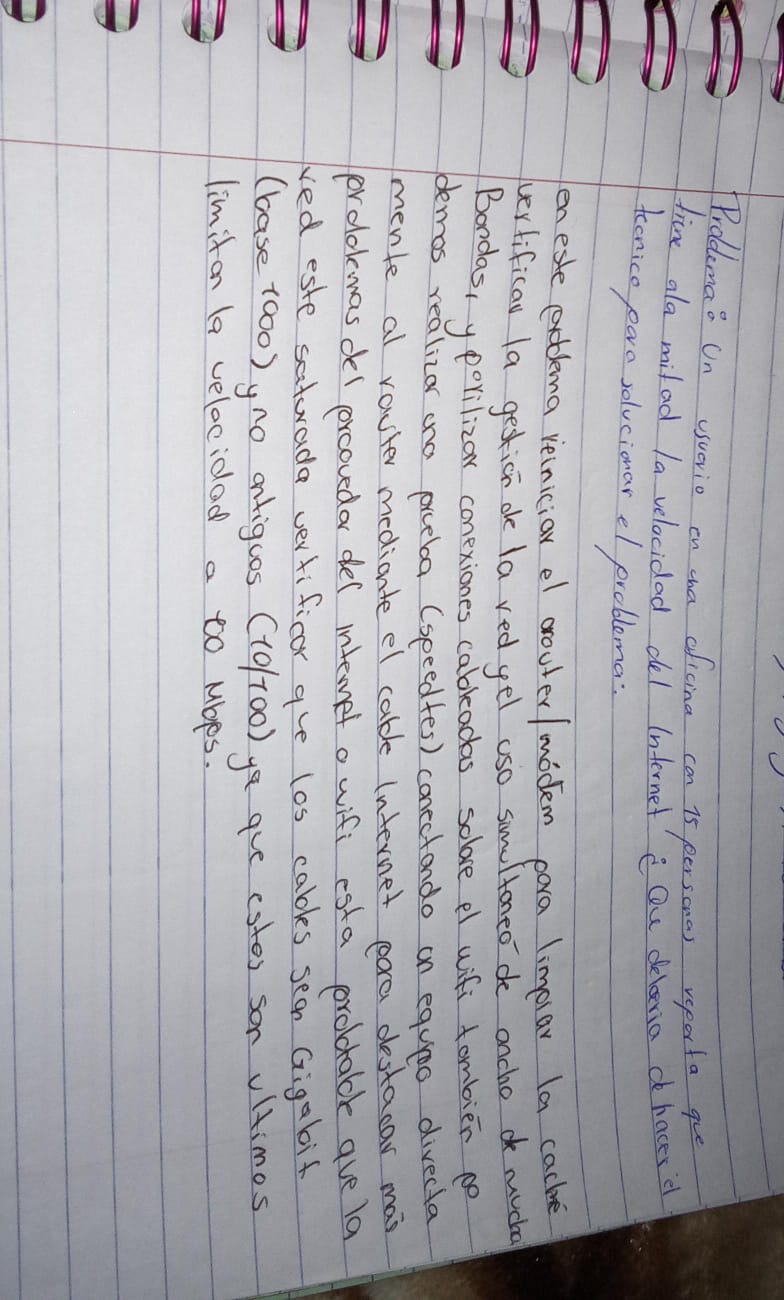 Problema: Un usuario en una oficina con 15 personas reporta que
tiene ala mitad la velocidad del Internet ¿Que deberia de hacer el
tecnico para solucionar el problema:
en este problema reiniciar el router/módem para limpiar la caché
vertificar la gestión de la red yel uso simultaneó de ancho de mucha
Bandas, y porilizar conexiones cableadas sobre el wifi también po
demos realizar una prueba (speedtes) conectando un equipo directa
mente al rowter mediante el cable Internet para destacar más
problemas del proovedor del internet o wifi esta probable que la
red este saturada vertificar que los cables sean Gigabit
(base 1000) y no antiguos (10/100) ya que estos son ultimos
limitan la velocidad a Mbps.